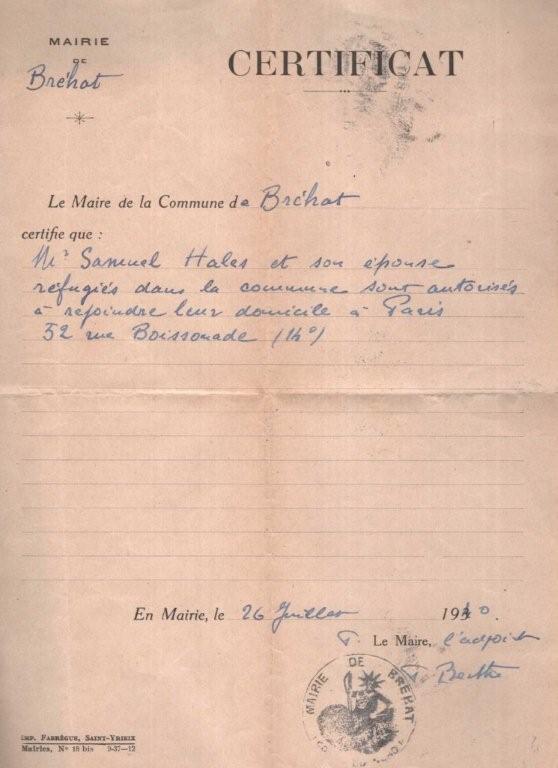 MAIRIE
DE
Bréhat
CERTIFICAT
Le Maire de la Commune de Bréhat
certifie que :
Mr Samuel Hales et son épouse
réfugiés dans la commune sont autorisés
à rejoindre leur domicile à Paris
52 rue Boissonade (14e)
En Mairie, le 26 Juillet 1940.
P. Le Maire, l'adjoint
Berthe
MAIRIE DE BRÉHAT
IMP. FABRÈGUE, SAINT-YRIEIX
Mairies, N° 18 bis 9-37-12